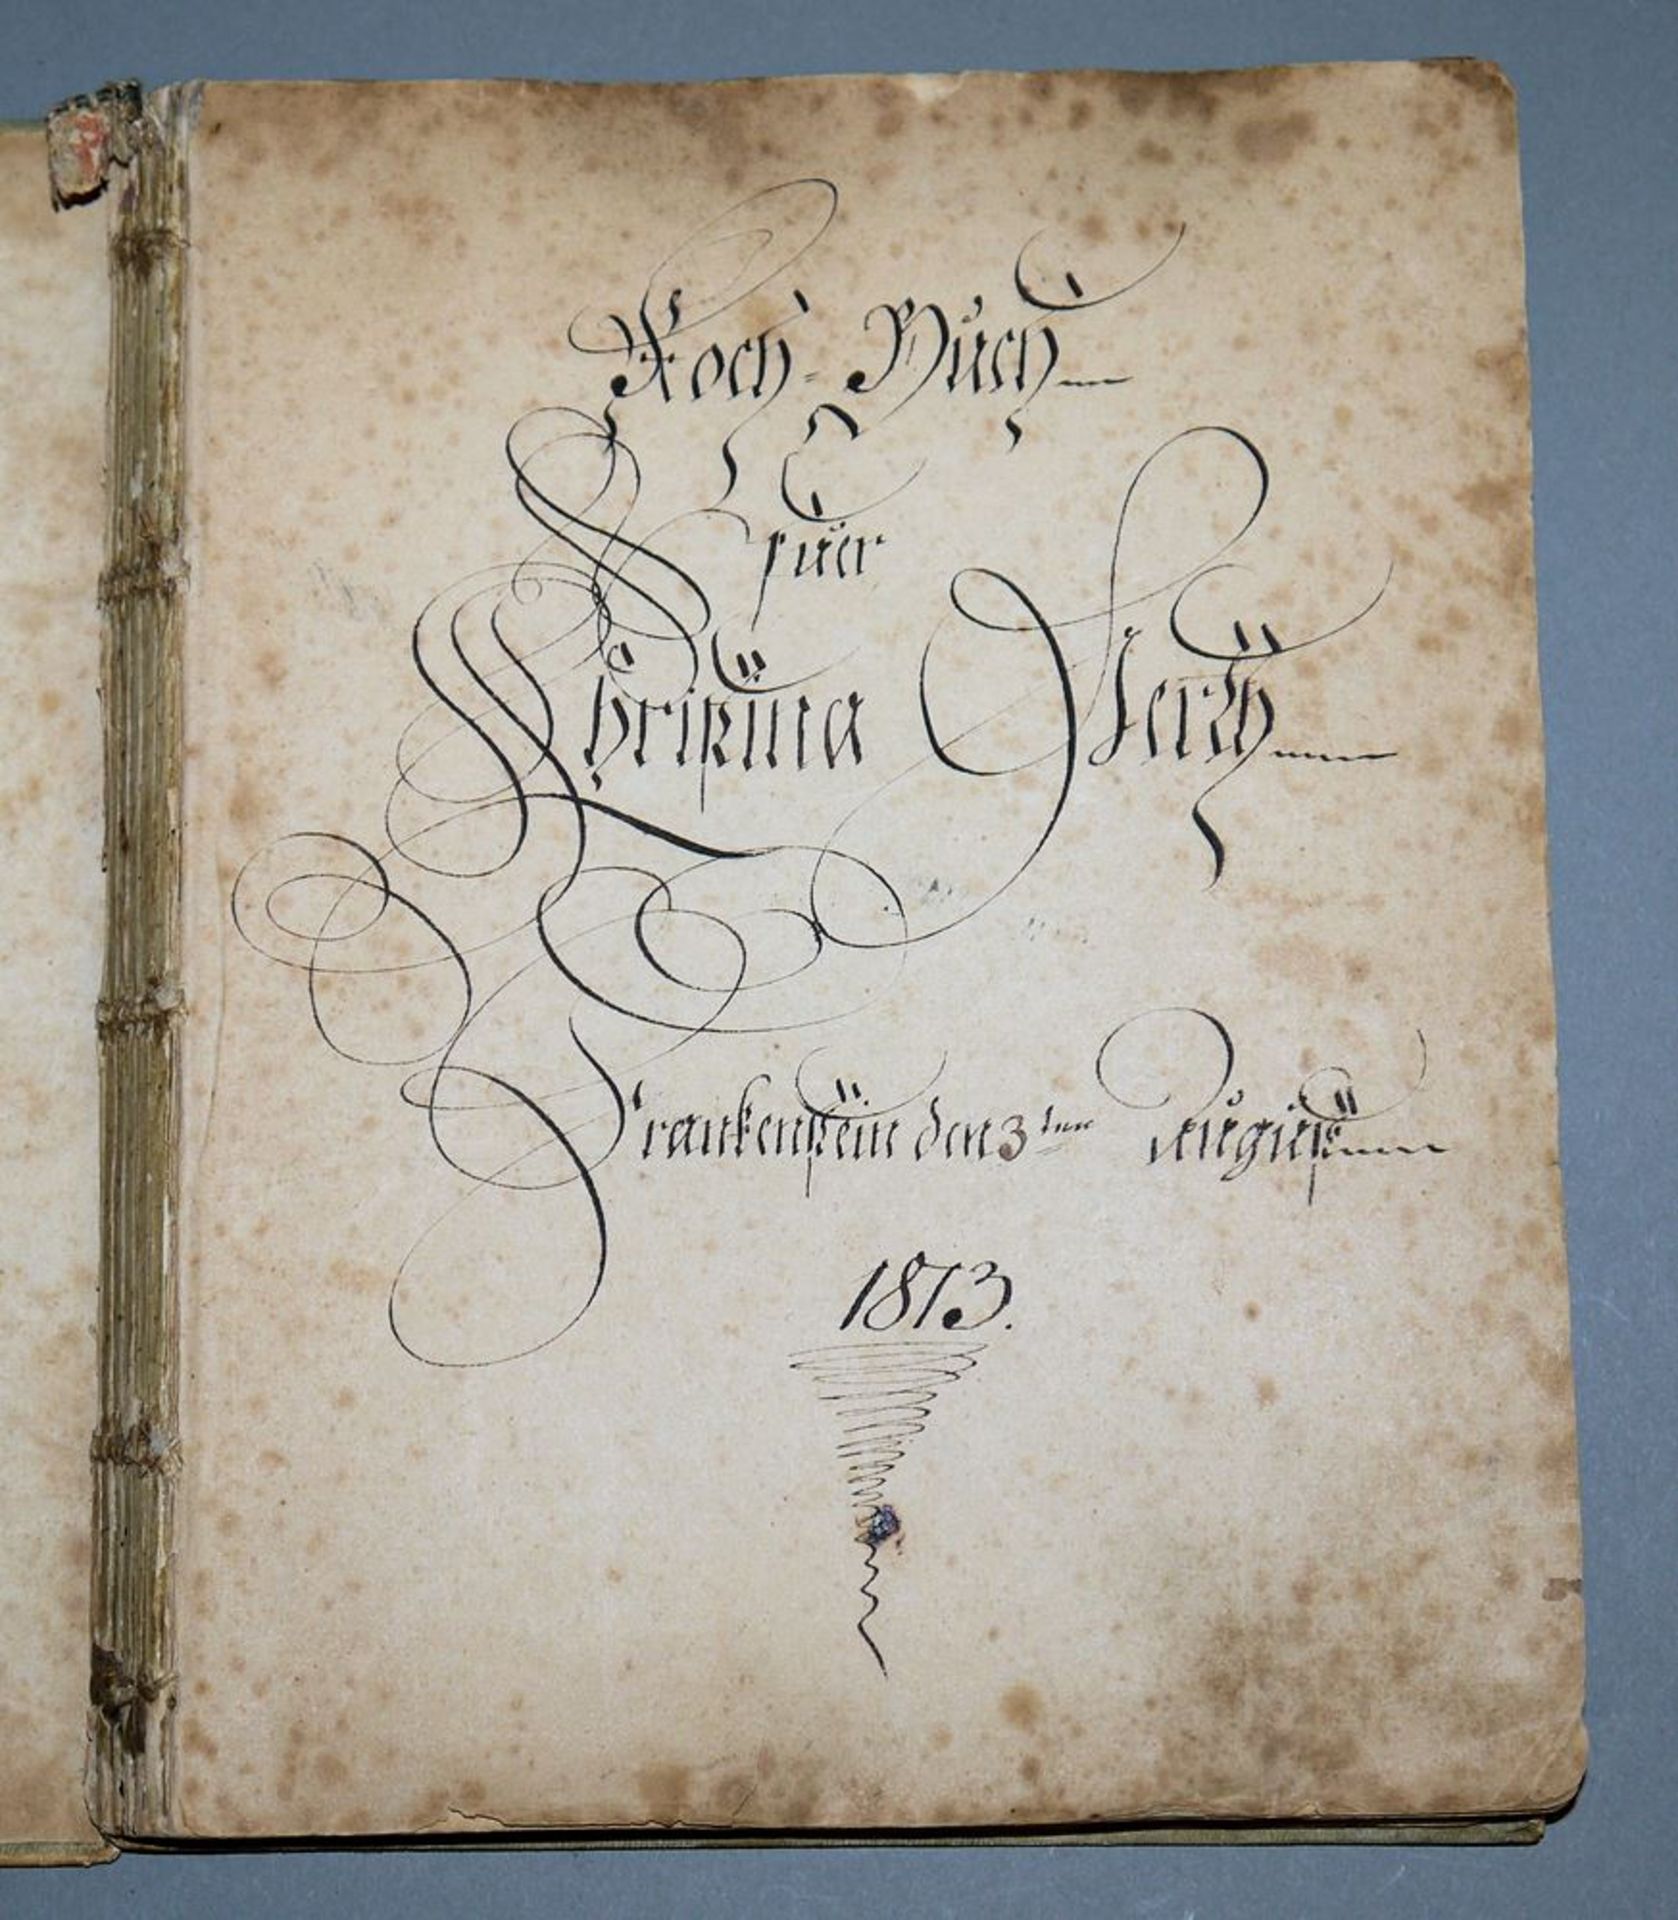 Koch-Buch
fuer
Christina
Frankenstein den 3ten August
1873.